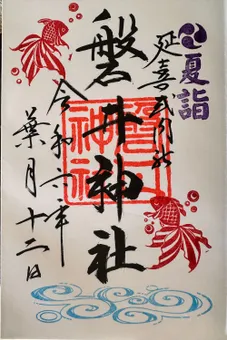 夏詣
延喜式内社
磐井神社
令和六年
葉月十二日
磐井
神社